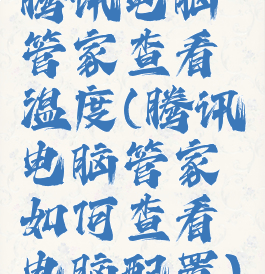 腾讯电脑
管家查看
温度(腾讯
电脑管家
如何查看
电脑配置)